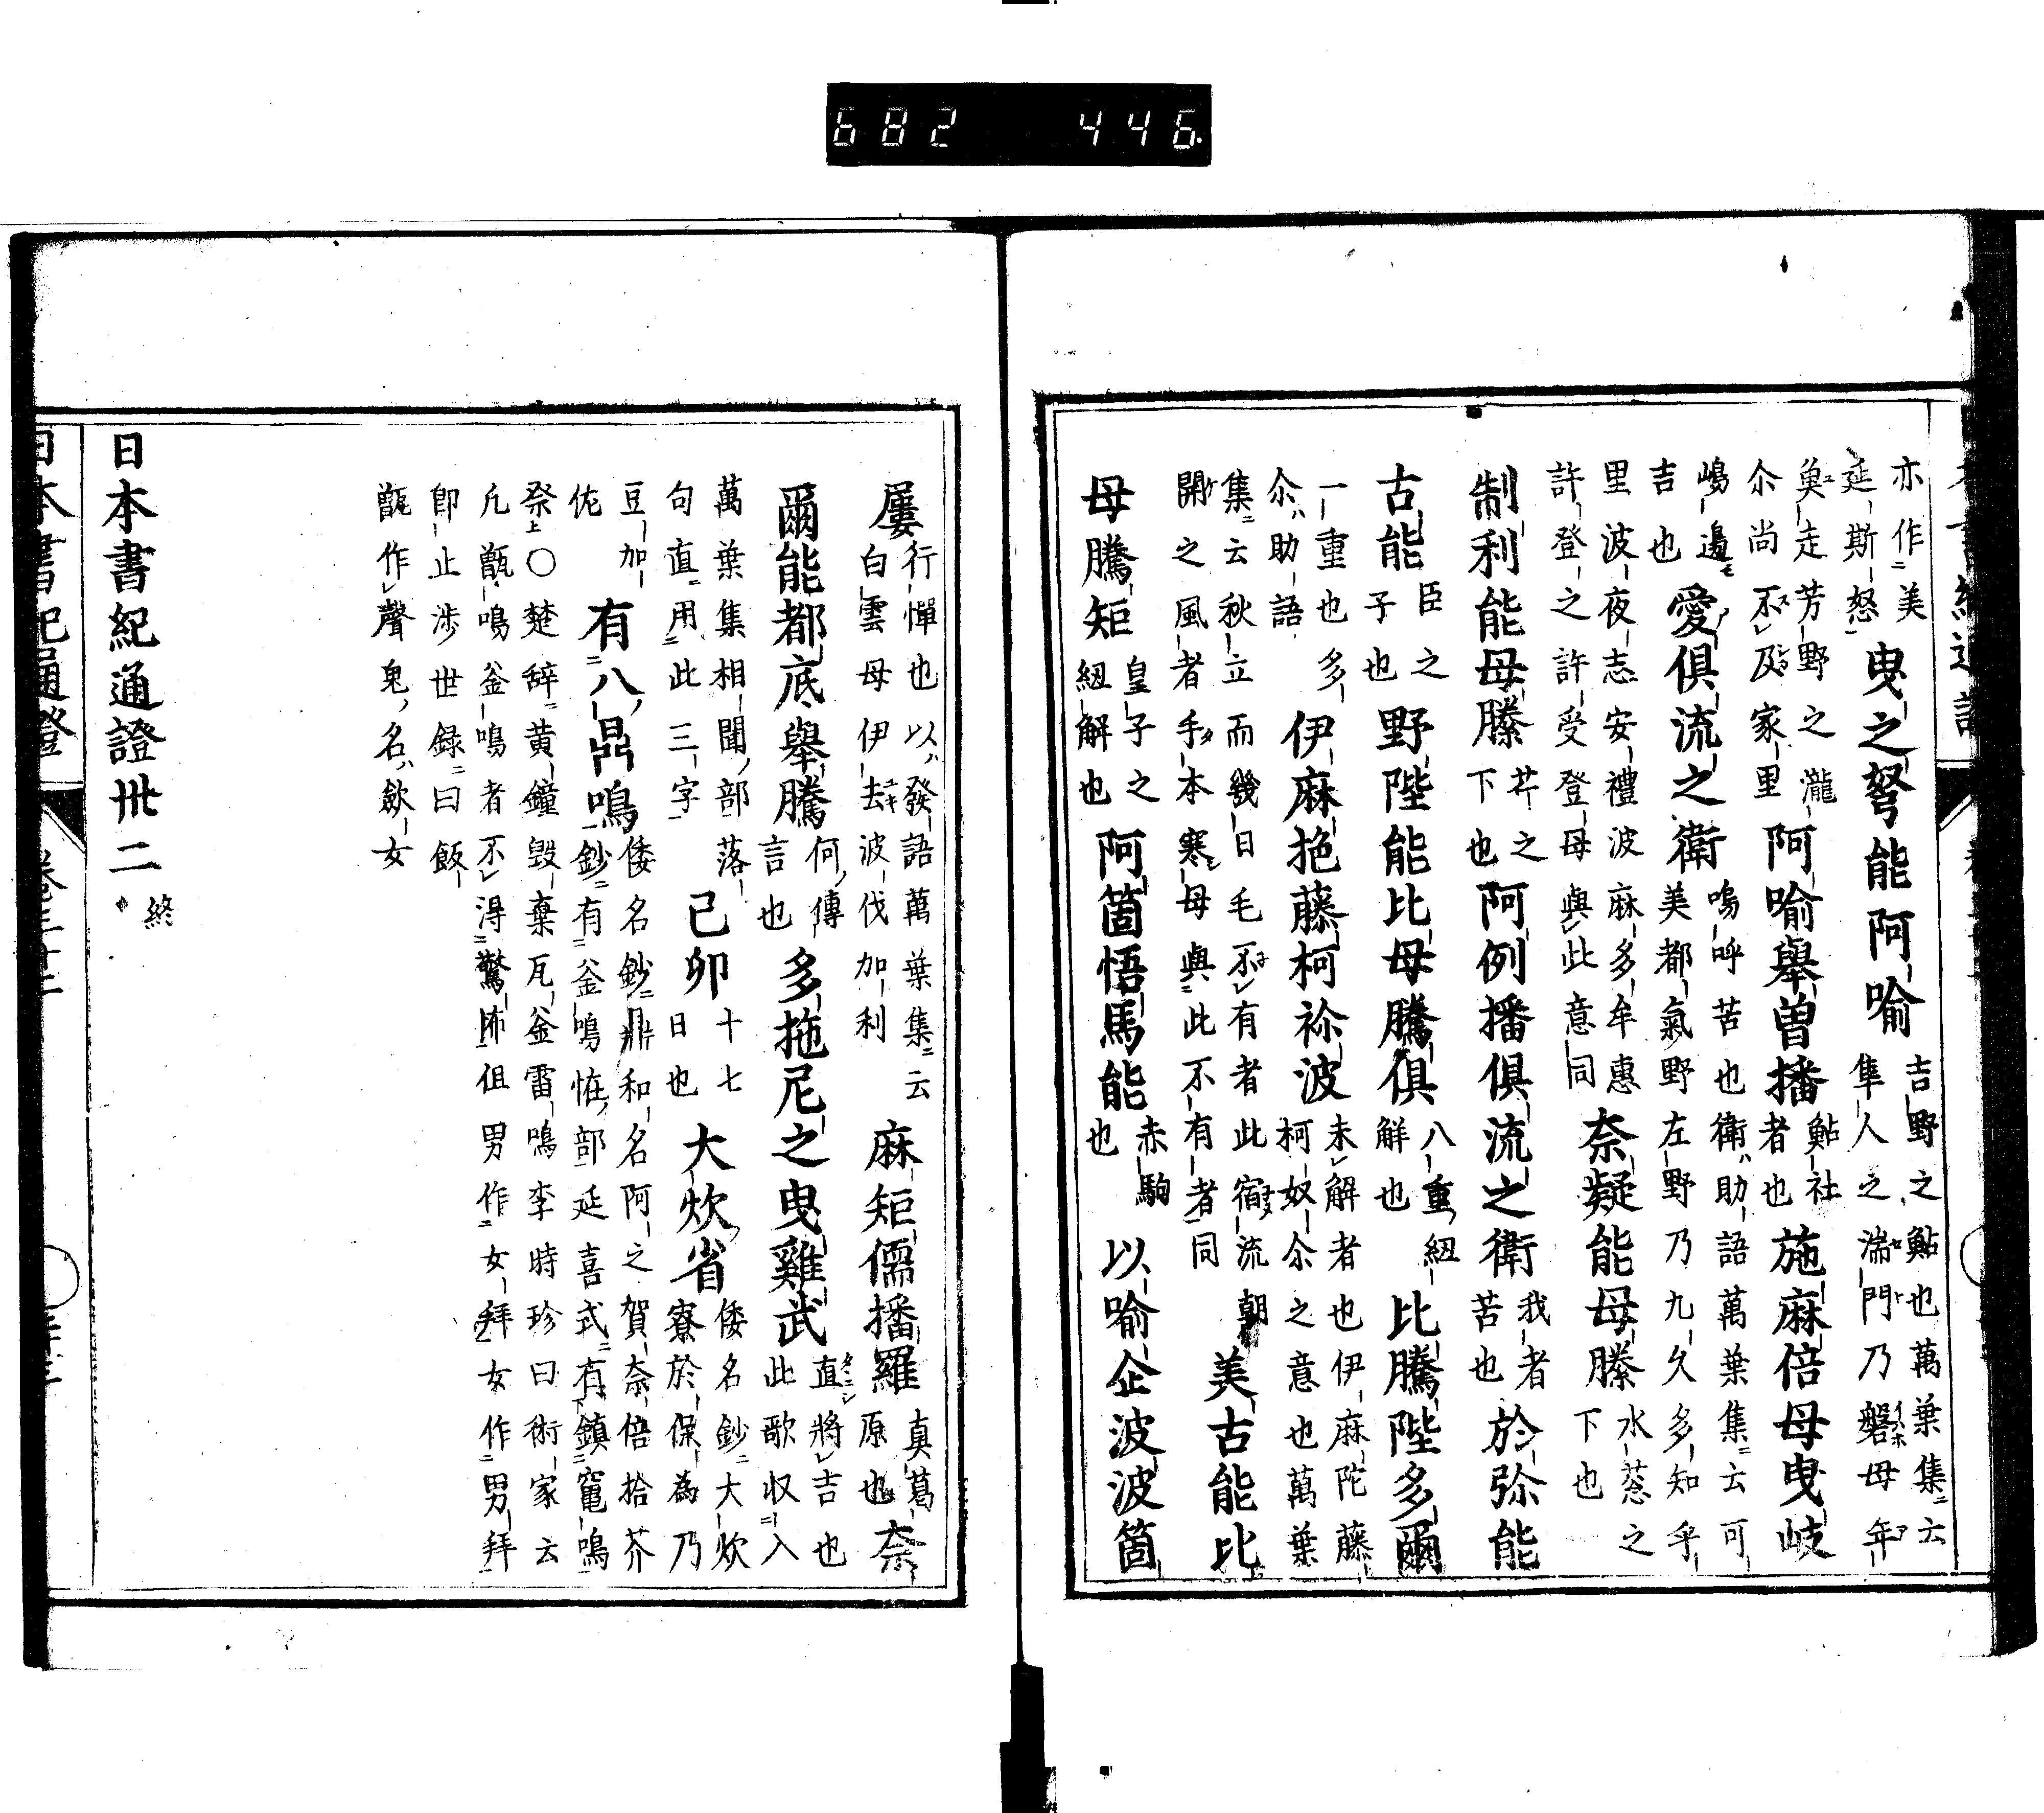 682 446
亦作美
延斯怒
曳之弩能阿喻
吉野之鮎也萬葉集云
隼人之湍門乃磐母年
奐走芳野之瀧
尒尚不及家里
阿喻舉曽播
鮎社
者也
施麻倍母曳岐
嶋邊
吉也
愛倶流之衛
嗚呼苦也衛助語萬葉集云可
美都氣野左野乃九久多知乎
里波夜志安禮波麻多牟惠
許登之許受登母與此意同
奈凝能母縢
水葱之
下也
制利能母縢
芹之
下也
阿例播倶流之衛
我者
苦也
於弥能
古能
臣之
子也
野陛能比母騰倶
八重紐
解也
比騰陛多爾
一重也多
尒助語
伊麻拖藤柯祢波
未解者也伊麻陀藤
柯奴尒之意也萬葉
集云秋立而幾日毛不有者此宿流朝
開之風者手本寒母與此不有者同
美古能比
母騰矩
皇子之
紐解也
阿箇悟馬能
赤駒
也
以喻企波波箇
屢
行憚也以發語萬葉集云
白雲母伊去波伐加利
麻矩儒播羅
真葛
原也
奈
爾能都底舉騰
何傳
言也
多拖尼之曳雞武
直將吉也
此歌収入
萬葉集相聞部落
句直用此三字
己卯
十七
日也
大炊省
倭名鈔大炊
寮於保為乃
豆加
佐
有八鼎鳴
倭名鈔鼎和名阿之賀奈倍拾芥
鈔有釜鳴恠部延喜式有鎮竈鳴
祭上〇楚辞黄鐘毀棄瓦釜雷鳴李時珍曰術家云
凢甑鳴釜鳴者不得驚怖但男作女拜女作男拜
即止渉世録曰飯
甑作聲鬼名歛女
日本書紀通證卅二
終
日本書紀通證